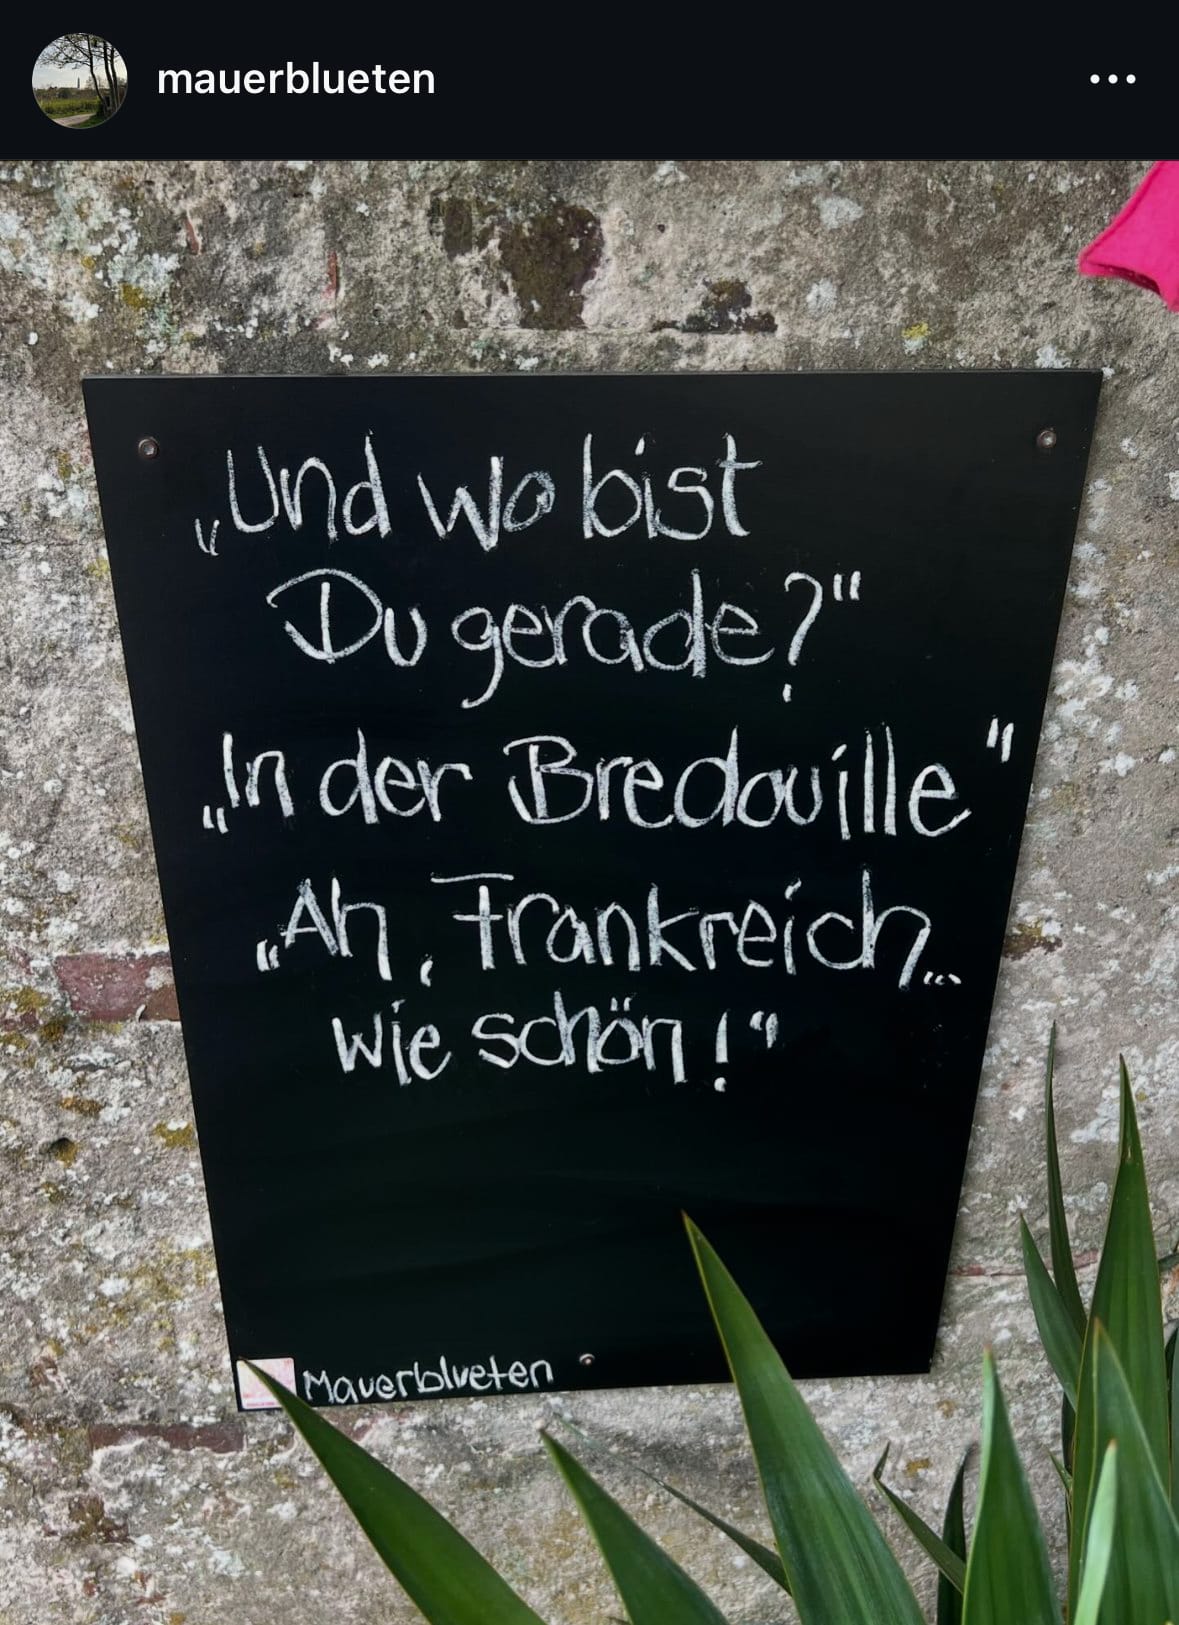 mauerblueten
„Und wo bist
Du gerade?“
„In der Bredouille“
„Ah, Frankreich...
wie schön!“
Mauerblueten